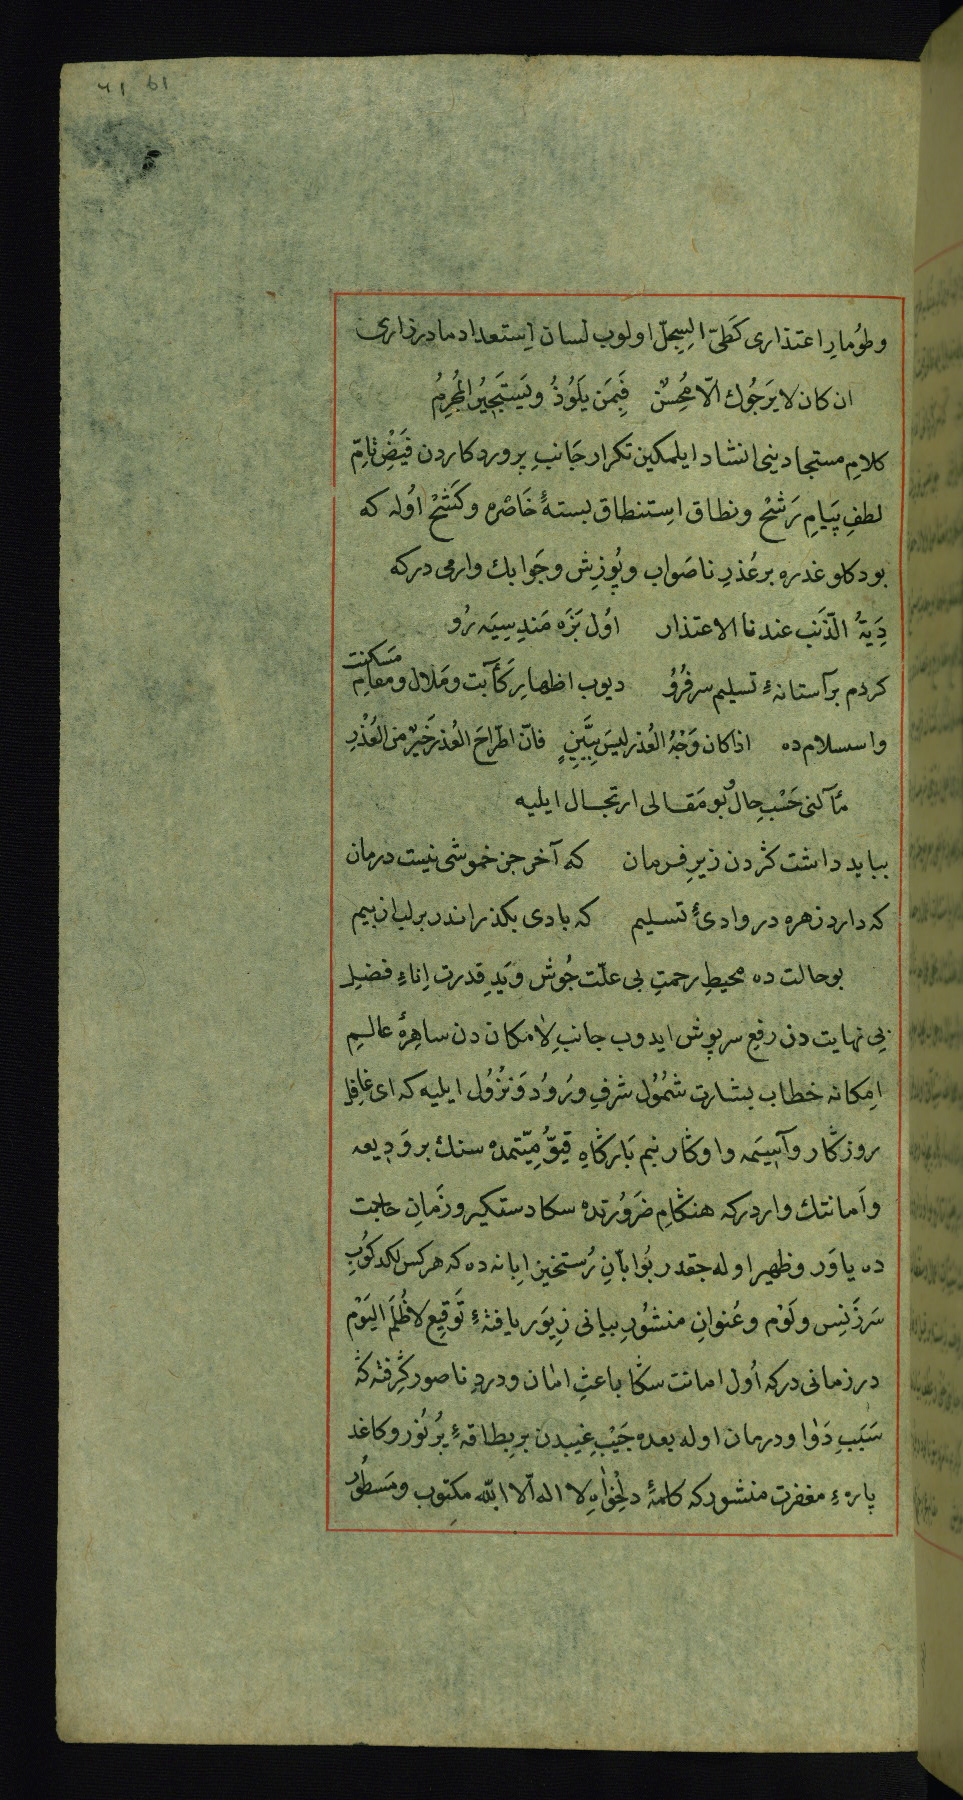 ٦١ 61
وطُومارِ اعتذاری كَطَیِّ السِّجِلّ اولوب لسان اِستعداد مادرزاری
ان كان لا يَرجُوك الّا مُحسِنٌ فَبِمَن يَلُوذُ ويَستَجيرُ المُجرِمُ
كلامِ مستجادینی انشاد ایلمكین تكرار جَانبِ پروردكاردن فَيَضِ تامِّ
لطفِ پَیامِ رَشْحْ ونطاق اِستنطاق بستهٔ خَاصْره وكَشْحْ اوُله كه
بودكلو غدره بر عُذرِ ناصَواب وپُوزِش وجَوابك وارمی دركه
دِيَةُ الذَّنبِ عندنا الاعتذار اوُل بَزَه مَندِ سِیَه رُو
كردم بر آستانهٔ تسلیم سر فُرُو دیوب اظهارِ كَآبت ومَلال ومقامِ مَسكنت
واستسلامده اذا كان وَجْهُ العُذر ليسَ بِبَيِّنٍ فانّ اطّراحَ العُذر خَيرٌ من العُذْرِ
مَآلنی حَسْبِ حال بو مَقالی ارتجال ایلیه
بباید داشت كَردن زیرِ فرمان كه آخر جز خموشی نیست درمان
كه دارد زهره در وادیٔ تسلیم كه بادی بكذراند بر لب از بیم
بو حالت ده محیطِ رحمتِ بی علّت جُوش ویَدِ قدرت اِناءِ فضیلِ
بی نهایت دن رفعِ سرپوش ایدوب جانبِ لامكان دن ساهِرهٔ عالمِ
اِمكانه خطاب بشارت شمُوُل شرفِ ورُوُد ونُزُوُل ایلیه كه ای غافلِ
روزكار وآسیمه واوكار بنم باركاهِ قیّومیّتمده سنك بر وَدِیعه
وامانتك واردركه هنكامِ ضَرُورتده سكا دستكیر وزمَانِ حاجت
ده یاوَر وظهیر اوله جقدر بُو ابَّانِ رُستخیز اِبانه ده كه هر كس لكد كُوبِ
سَرزَنِس ولَوْم وعُنوانِ منشُورِ بیانی زِیوَر یافتهٔ تَوقیعِ لا ظُلْمَ اليَوْم
در زمانی دركه اُول امانت سكا باعثِ امَان ودردِ ناصور كِرفته كه
سَبَبِ دَوا ودرمان اوله بعده جَیْبِ غیبدن بر بِطاقهٔ پُر نُور وكاغد
پارهٔ مغفرت منشور كه كلمهٔ دلخواهِ لا اله الّا الله مكتوب ومَسطُور